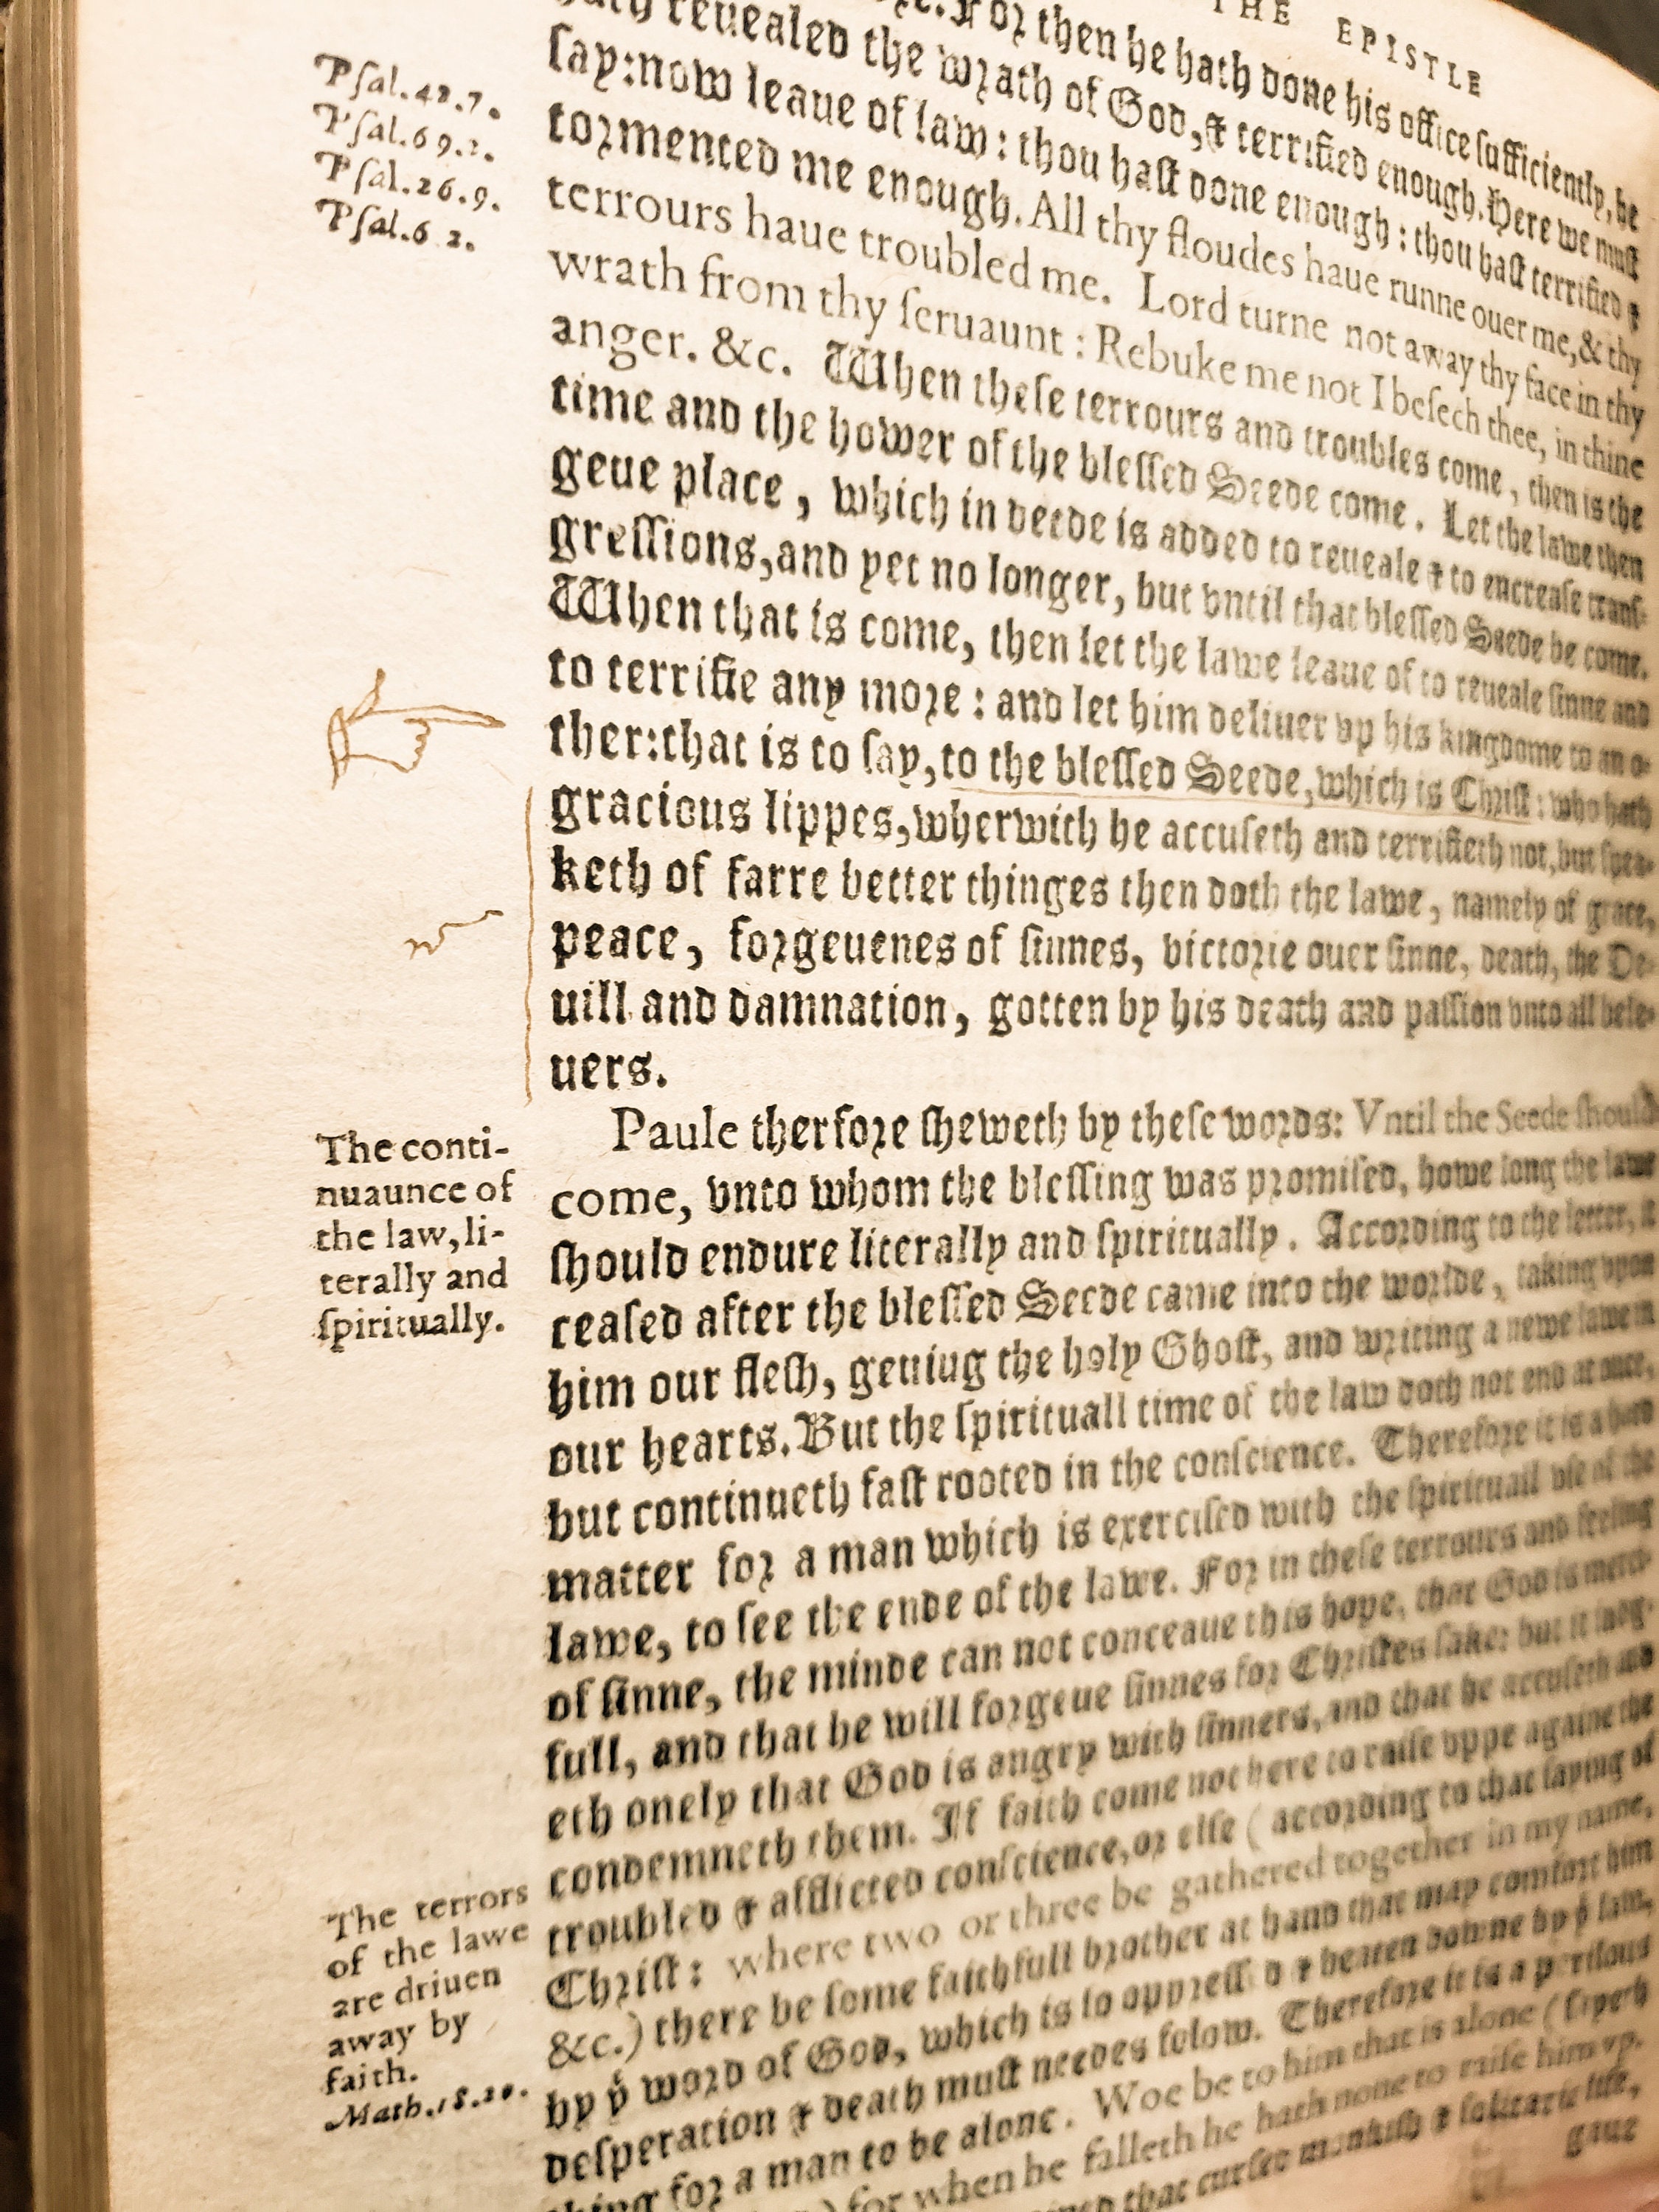 THE EPISTLE
For then he hath done his office sufficiently, he
hath reuealed the wrath of God, & terrified enough. Here we must
say: now leaue of law: thou hast done enough: thou hast terrified &
tormented me enough. All thy floudes haue runne ouer me, & thy
terrours haue troubled me. Lord turne not away thy face in thy
wrath from thy seruaunt: Rebuke me not I besech thee, in thine
anger. &c. When these terrours and troubles come, then is the
time and the hower of the blessed Seede come. Let the lawe then
geue place, which in deede is added to reueale & to encrease trans-
gressions, and yet no longer, but vntil that blessed Seede be come.
When that is come, then let the lawe leaue of to reueale sinne and
to terrifie any more: and let him deliuer vp his kingdome to an o-
ther: that is to say, to the blessed Seede, which is Christ: who hath
gracious lippes, wherwith he accuseth and terrifieth not, but spea-
keth of farre better thinges then doth the lawe, namely of grace,
peace, forgeuenes of sinnes, victorie ouer sinne, death, the De-
uill and damnation, gotten by his death and passion vnto all bele-
uers.
Paule therfore sheweth by these words: Vntil the Seede should
come, vnto whom the blessing was promised, howe long the lawe
should endure literally and spiritually. According to the letter, it
ceased after the blessed Seede came into the worlde, taking vpon
him our flesh, geuing the holy Ghost, and writing a newe lawe in
our hearts. But the spirituall time of the law doth not end at once,
but continueth fast rooted in the conscience. Therefore it is a hard
matter for a man which is exercised with the spirituall vse of the
lawe, to see the ende of the lawe. For in these terrours and feeling
of sinne, the minde can not conceaue this hope, that God is merci-
full, and that he will forgeue sinnes for Christes sake: but it iudg-
eth onely that God is angry with sinners, and that he accuseth and
condemneth them. If faith come not here to raise vppe againe the
troubled & afflicted conscience, or else (according to that saying of
Christ: where two or three be gathered together in my name,
&c.) there be some faithfull brother at hand that may comfort him
by yͤ word of God, which is so oppressed & beaten downe by yͤ law,
desperation & death must needes folow. Therefore it is a perilous
thing for a man to be alone. Woe be to him that is alone (sayeth
for when he falleth he hath none to raise him vp.
that cursed monkish & solitarie life,
gaue
Psal.42.7.
Psal.69.2.
Psal.26.9.
Psal.6 2.
The conti-
nuaunce of
the law, li-
terally and
spiritually.
The terrors
of the lawe
are driuen
away by
faith.
Math.18.20.